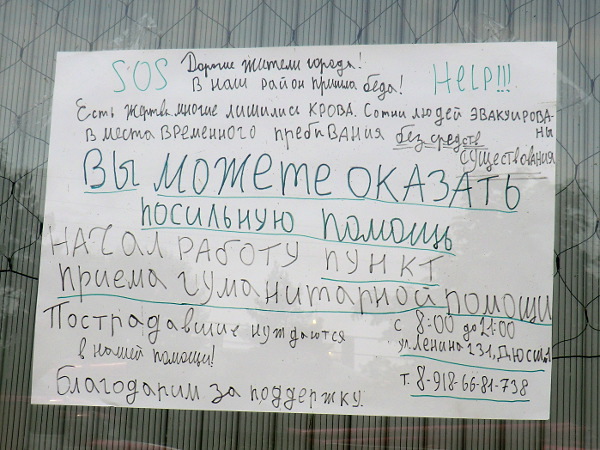 SOS Дорогие жители города! Help!!!
В наш район пришла беда!
Есть жертвы, многие лишились крова. Сотни людей эвакуирова-
в места временного пребывания без средств ны
существования
Вы можете оказать
посильную помощь
Начал работу пункт
приема гуманитарной помощи
Пострадавшие нуждаются с 8:00 до 21:00
в нашей помощи! ул. Ленина 231, ДЮСШ
Благодарим за поддержку. т. 8-918-66-81-738